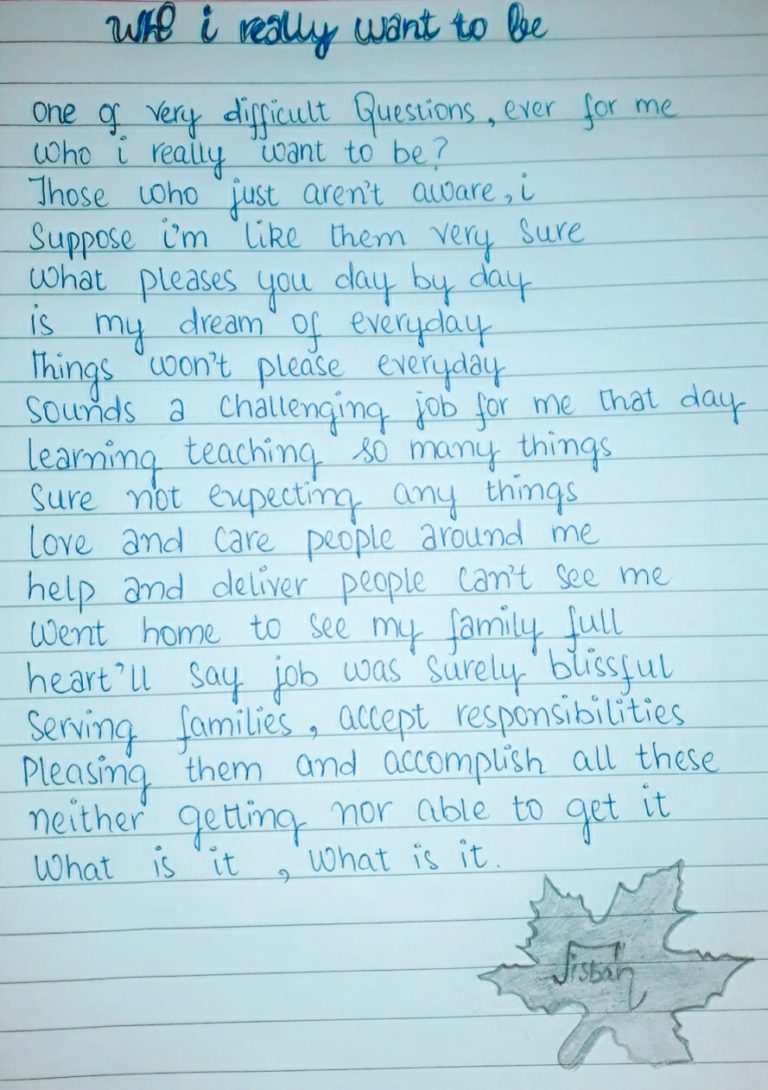 who i really want to be
One of very difficult Questions, ever for me
Who i really want to be?
Those who just aren't aware, i
Suppose i'm like them very sure
What pleases you day by day
is my dream of everyday
things won't please everyday
Sounds a challenging job for me that day
learning teaching so many things
Sure not expecting any things
love and care people around me
help and deliver people can't see me
Went home to see my family full
heart'll say job was surely blissful
Serving families, accept responsibilities
Pleasing them and accomplish all these
neither getting nor able to get it
What is it, What is it.
Jisbah